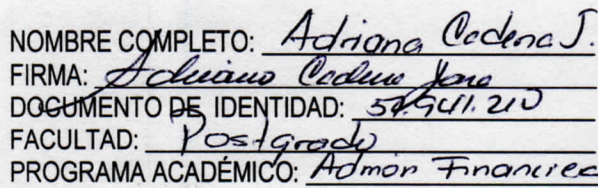 NOMBRE COMPLETO: Adriana Cadena J.
FIRMA: Adriana Cadena
DOCUMENTO DE IDENTIDAD:
FACULTAD: Postgrado
PROGRAMA ACADÉMICO: Admón Financiera